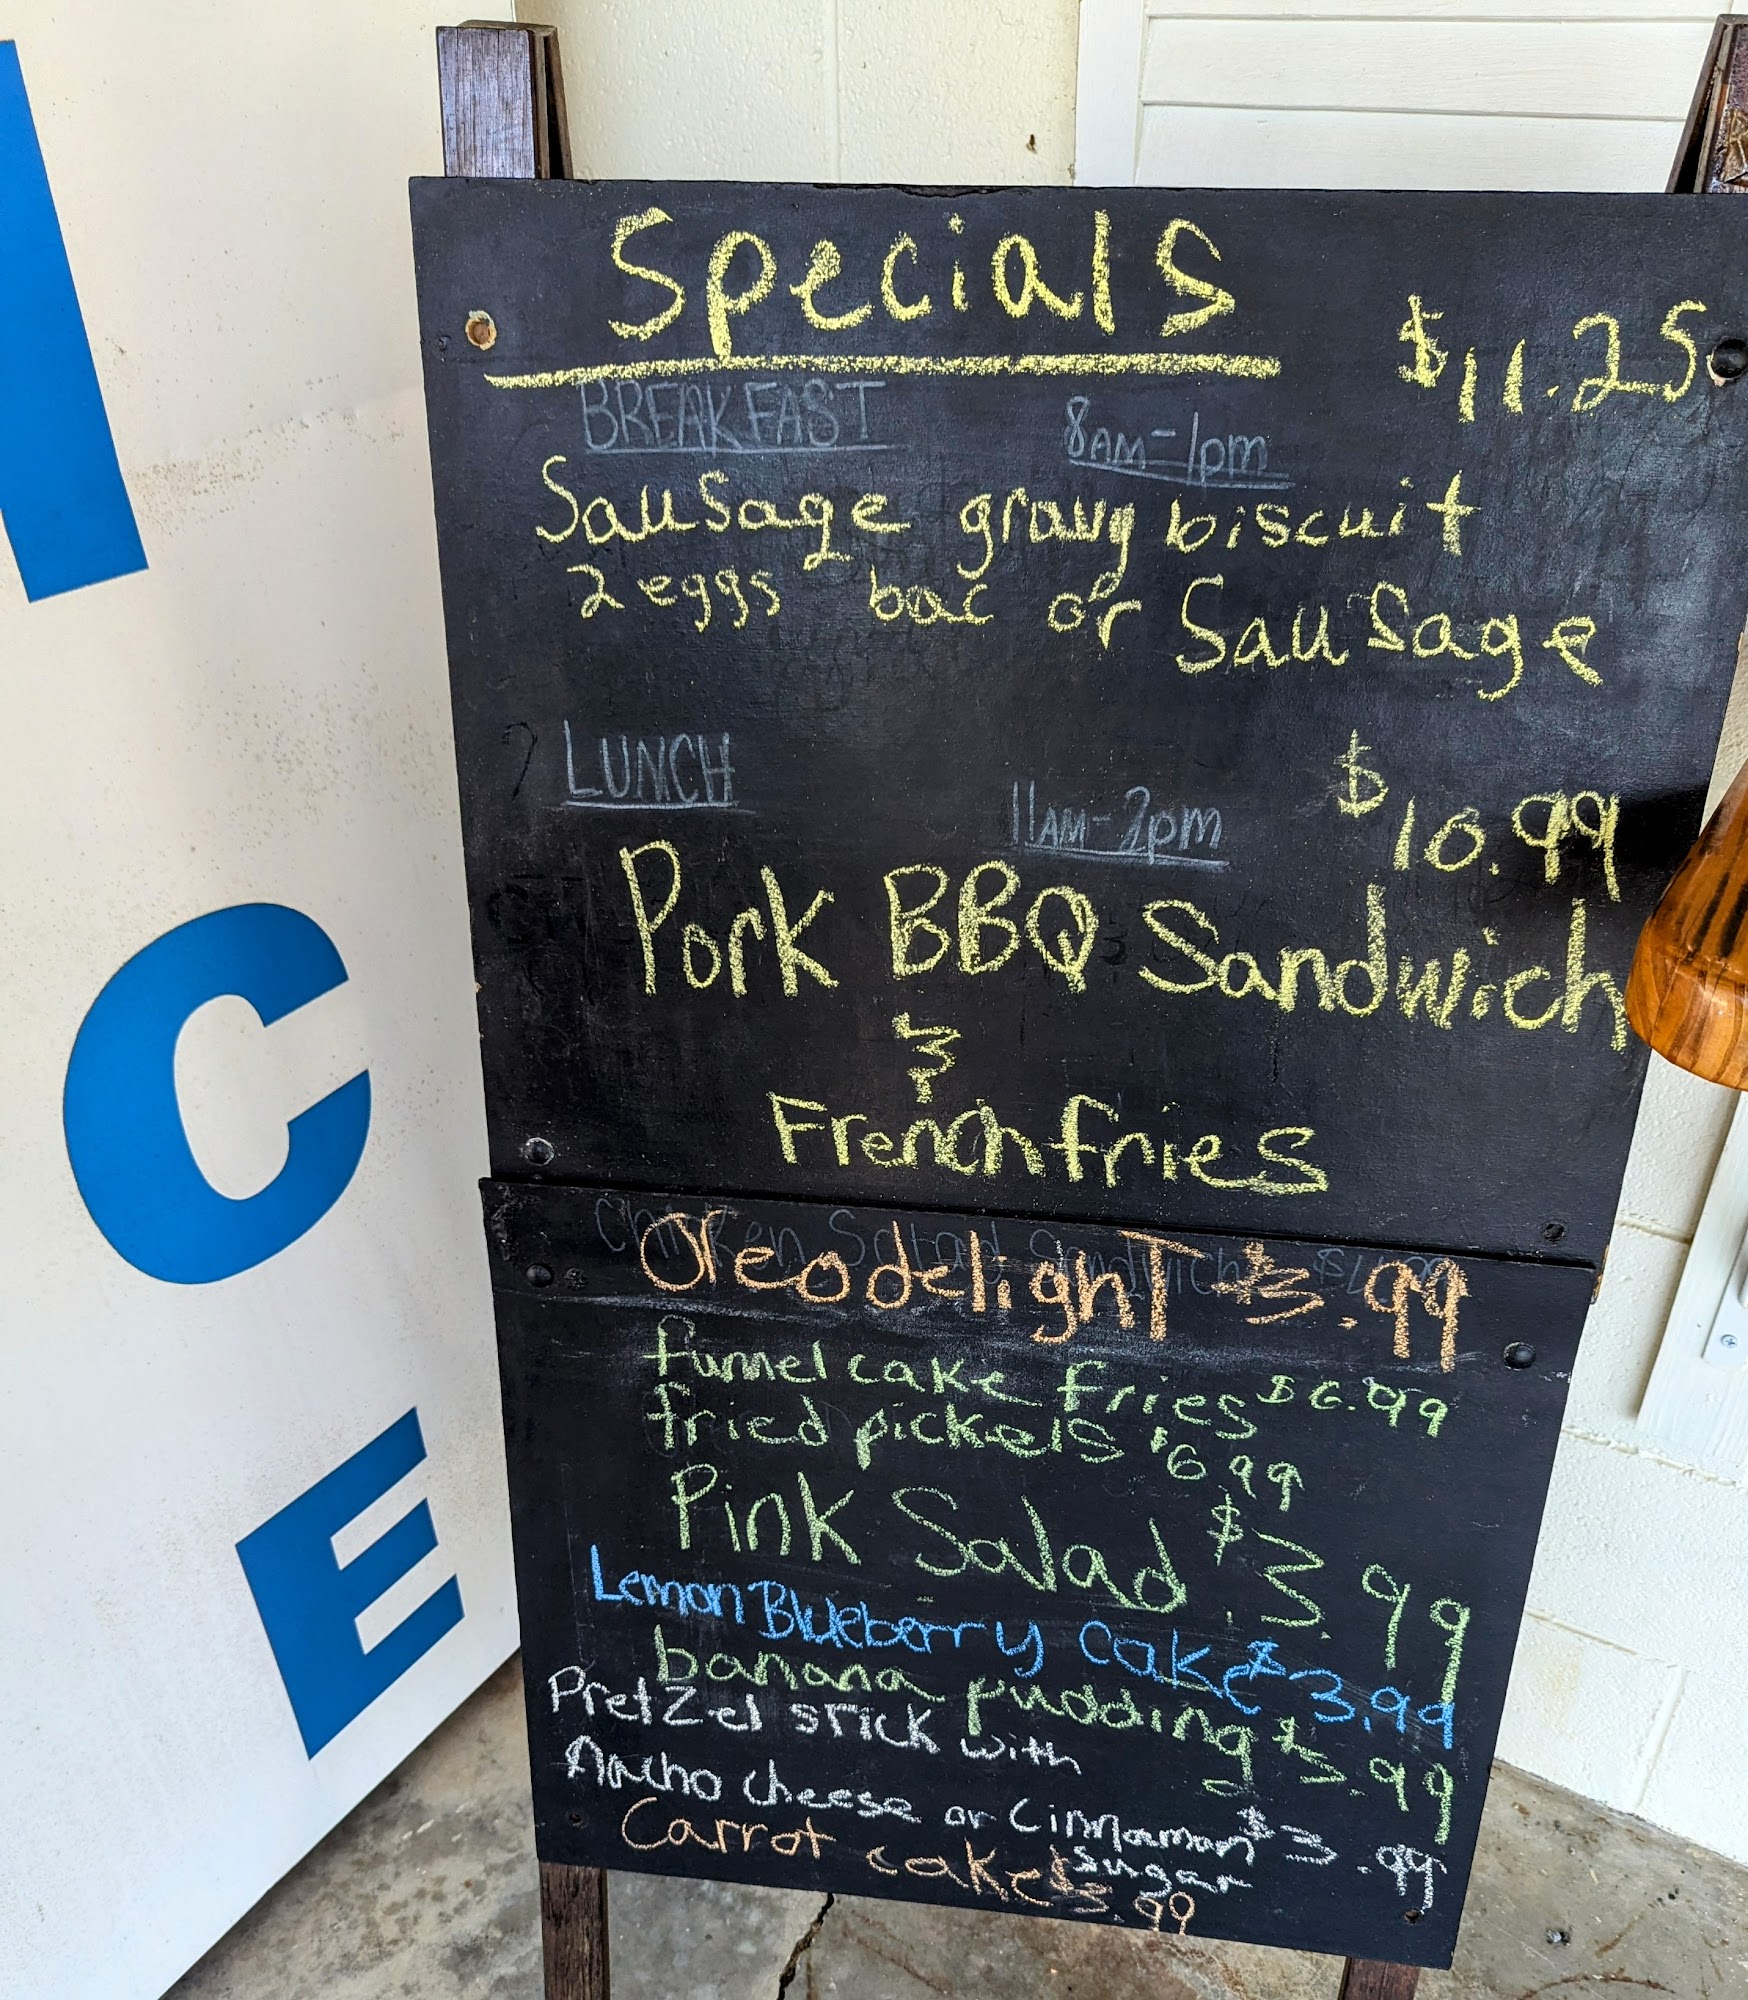 I
C
E
Specials
$11.25
BREAKFAST 8AM-1pm
Sausage gravy biscuit
2 eggs bac or Sausage
LUNCH 11AM-2pm
$10.99
Pork BBQ Sandwich
&
French fries
Chicken Salad Sandwich
Oreo delighT $3.99
funnel cake fries $6.99
fried pickels $6.99
Pink Salad $3.99
Lemon Blueberry cake $3.99
banana pudding $3.99
PreTzel sTick with
Nacho cheese or Cinnamon $3.99
sugar
Carrot cake $3.99